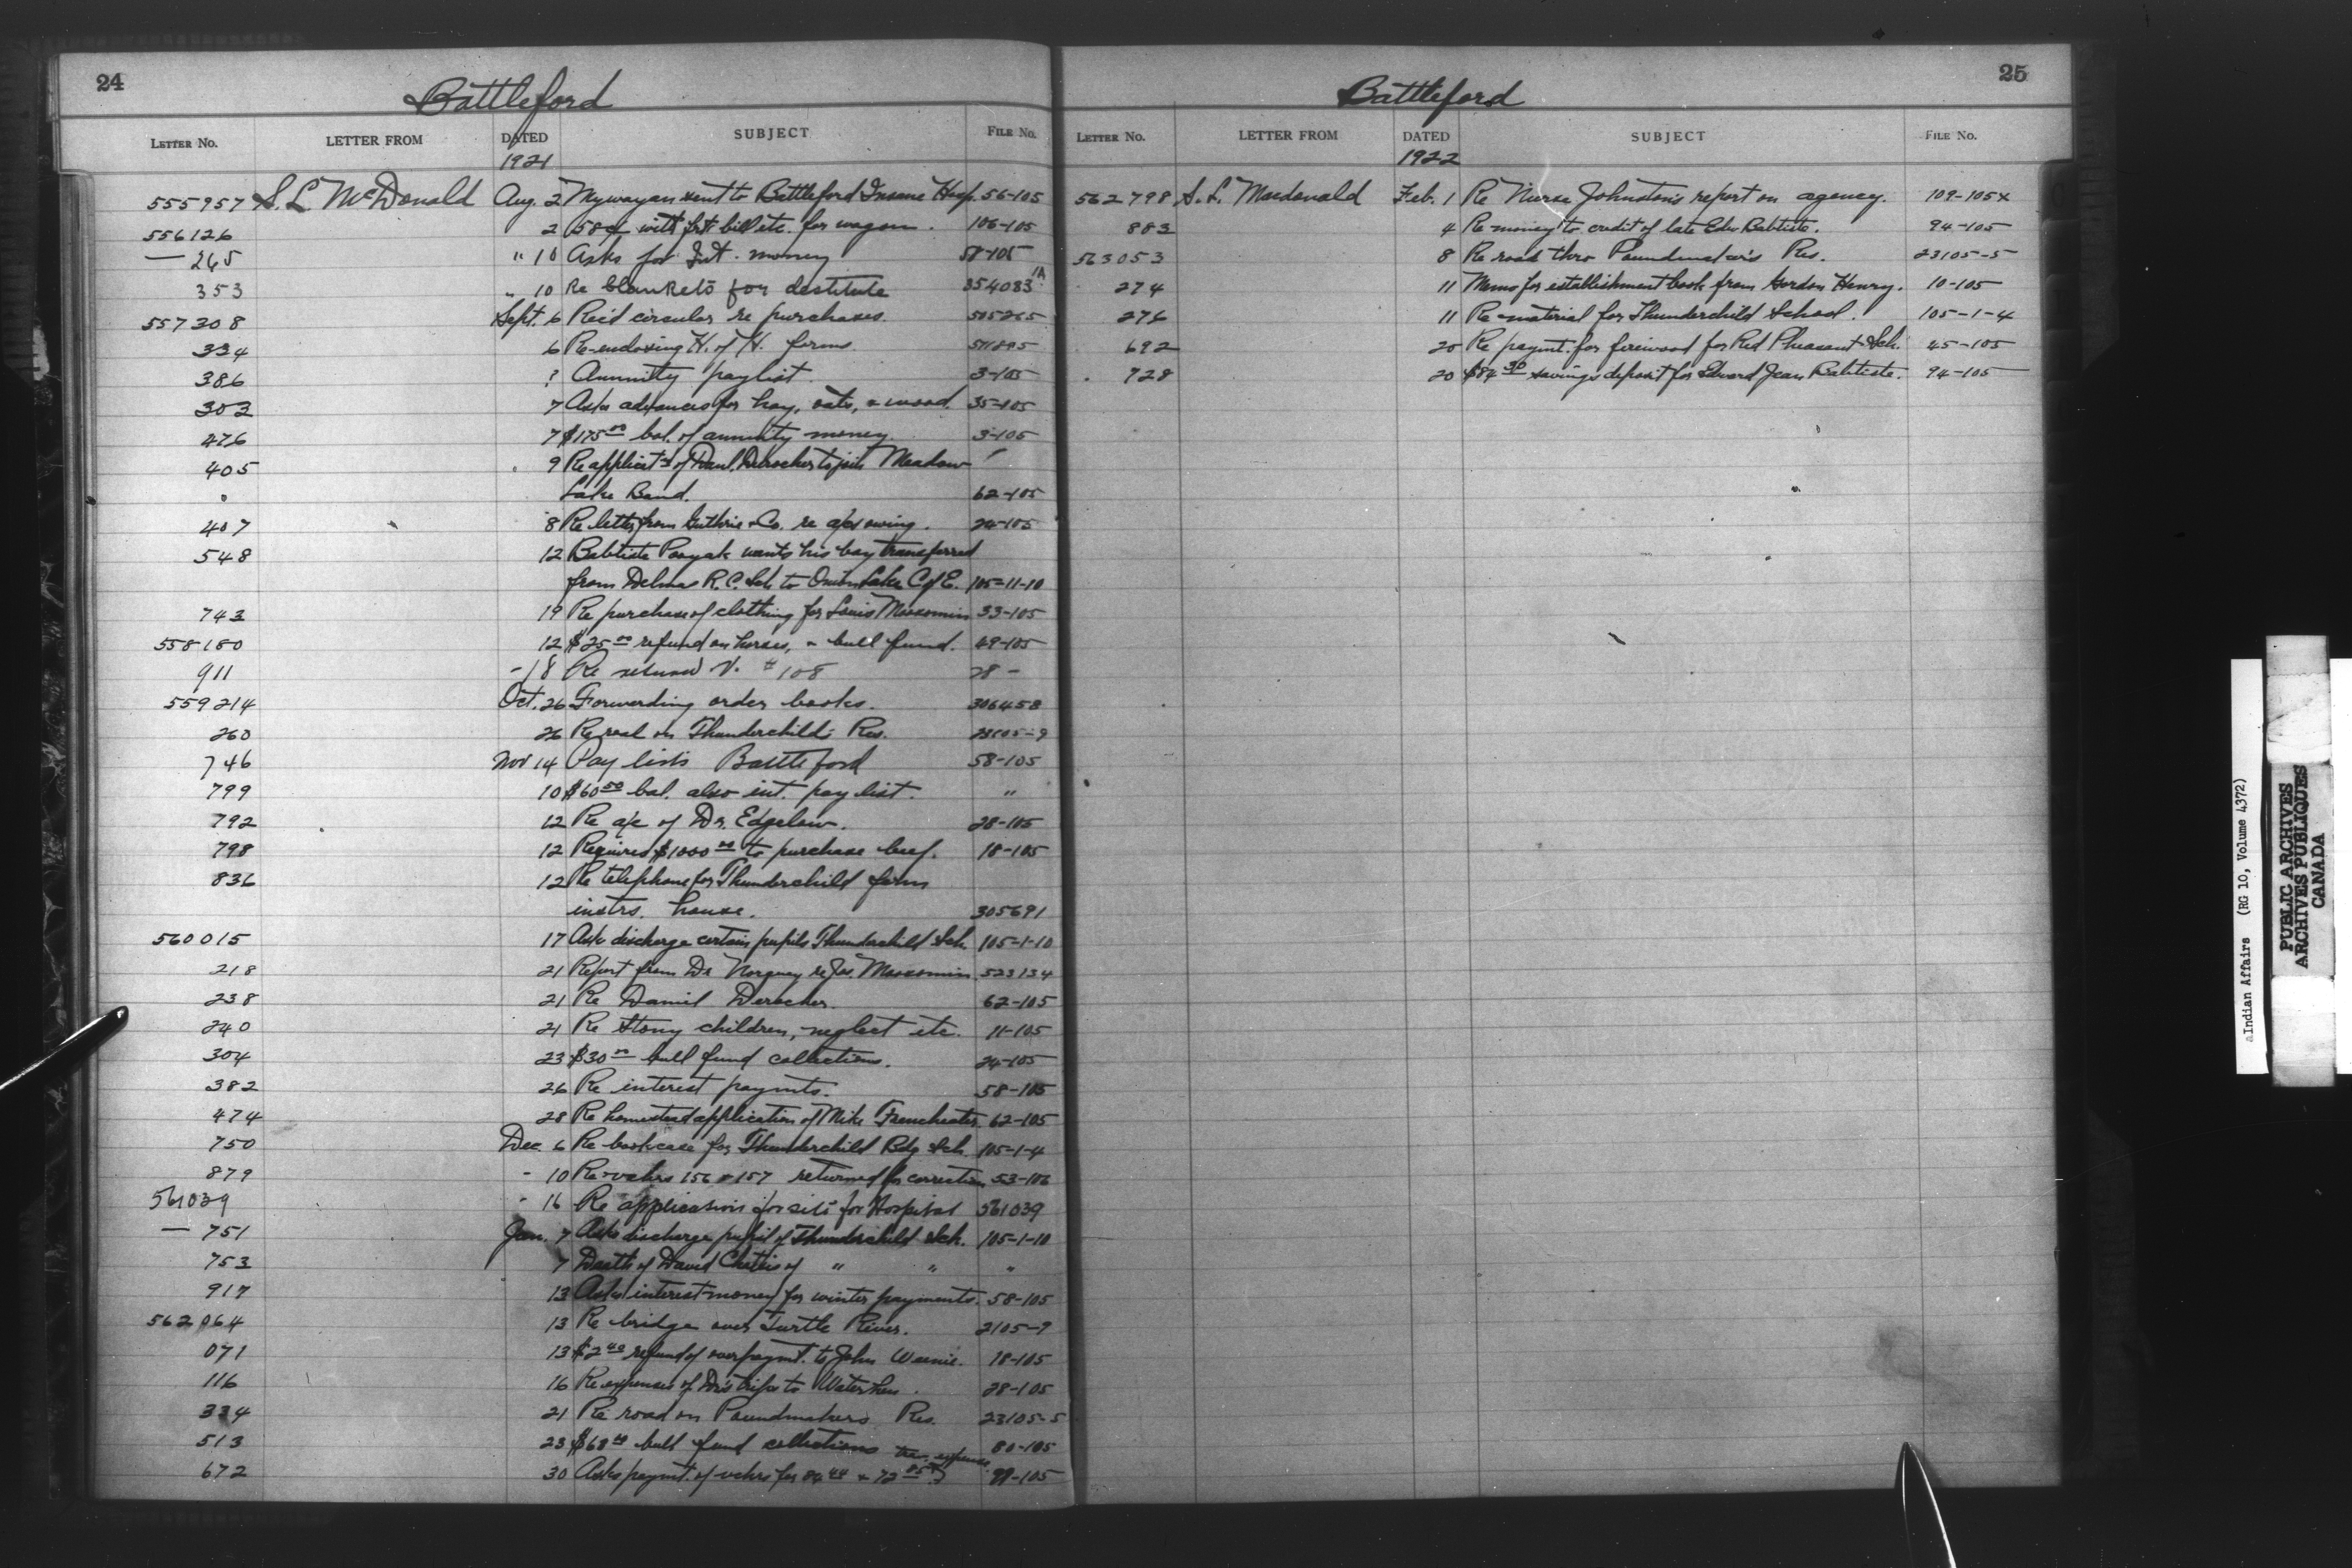 24
Battleford
LETTER NO. LETTER FROM DATED SUBJECT FILE NO.
1921
555957 S. L. McDonald Aug. 2 sent to Battleford Insane Hosp. 56-105
556126 2 58¢ with frt bill etc. for wagon. 106-105
— 265 " 10 Asks for Int. money 58-105
353 " 10 Re blankets for destitute 354083 1A
557308 Sept. 6 Rec'd circular re purchases. 505265
334 6 Re-endorsing H. of H. forms
386 ? Annuity paylist. 3-105
303 7 Asks advances for hay, oats, & wood. 35-105
476 7 $175 00 bal. of annuity money. 3-105
405 9 Re applicat'n of Danl. Derocher to join Meadow
Lake Band. 62-105
407 8 Re letter from Guthrie & Co. re a/c owing. 24-105
548 12 Babtiste Pooyak wants his boy transferred
from Delmas R.C. Sch. to Onion Lake C of E. 105-11-10
743 19 Re purchase of clothing for Louis Moosomin 33-105
558180 12 $25 00 refund on horses, & bull fund. 49-105
911 - 18 Re returned V. # 108 28 -
559214 Oct. 26 Forwarding order books. 306458
260 26 Re road on Thunderchild's Res. 23105-9
746 Nov 14 Pay lists Battleford 58-105
799 10 $60 50 bal. also int. pay list. "
792 12 Re a/c of Dr. Edgelow. 28-105
798 12 Requires $1000 00 to purchase beef. 18-105
836 12 Re telephone for Thunderchild farm
instrs. house. 305691
560015 17 Asks discharge certain pupils Thunderchild Sch. 105-1-10
218 21 Report from Dr Norquay re Jas. Moosomin. 523134
238 21 Re Daniel Derocher. 62-105
240 21 Re Stony children, neglect etc. 11-105
304 23 $30 00 bull fund collections. 24-105
382 26 Re interest paymts. 58-105
474 28 Re homestead application of Mike Frencheater. 62-105
750 Dec. 6 Re bookcase for Thunderchild Bdg Sch. 105-1-4
879 - 10 Re vchrs 156 & 157 returned for correction 53-106
561039 - 16 Re application for site for Hospital 561039
— 751 Jan. 7 Asks discharge pupil of Thunderchild Sch. 105-1-10
753 7 Death of David of " " "
917 13 Asks interest money for winter payments. 58-105
562064 13 Re bridge over Turtle River. 2105-9
071 13 $2 40 refund of overpaymt. to John Weenie. 18-105
116 16 Re expenses of Dr's trips to Waterhen. 28-105
334 21 Re road on Poundmakers Res. 23105-5
513 23 $68 bull fund collections 80-105
672 30 Asks paymt. of vchrs for 84 44 & 72 85 trav. expenses. 99-105
25
Battleford
LETTER NO. LETTER FROM DATED SUBJECT FILE NO.
1922
562798 S. L. Macdonald Feb. 1 Re Nurse Johnston's report on agency. 109-105x
883 4 Re money to credit of late Edw Babtiste. 94-105
563053 8 Re road thro Poundmaker's Res. 23105-5
274 11 Memo for establishment book from Gordon Henry. 10-105
276 11 Re material for Thunderchild School. 105-1-4
692 20 Re paymt. for firewood for Red Pheasant Sch. 45-105
728 20 $84 30 savings deposit for Edward Jean Babtiste. 94-105
aIndian Affairs (RG 10, Volume 4372)
PUBLIC ARCHIVES
ARCHIVES PUBLIQUES
CANADA